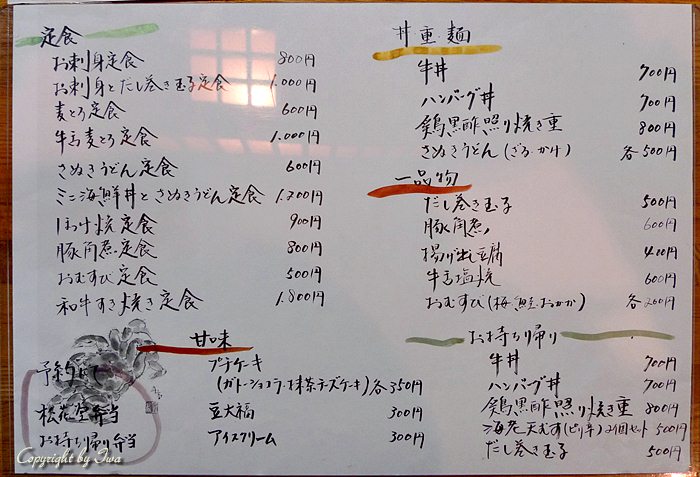 定食
お刺身定食 800円
お刺身とだし巻き玉子定食 1.000円
麦とろ定食 600円
牛舌麦とろ定食 1.000円
さぬきうどん定食 600円
ミニ海鮮丼とさぬきうどん定食 1.200円
ほっけ焼定食 900円
豚角煮定食 800円
おむすび定食 500円
和牛すき焼き定食 1.800円
甘味
プチケーキ
(ガトーショコラ・抹茶チーズケーキ)各350円
豆大福 300円
アイスクリーム 300円
予約にて
松花堂弁当
お持ち帰り弁当
丼 重 麺
牛丼 700円
ハンバーグ丼 700円
鶏黒酢照り焼き重 800円
さぬきうどん(ざる・かけ) 各500円
一品物
だし巻き玉子 500円
豚角煮 600円
揚げ出し豆腐 400円
牛舌塩焼 600円
おむすび(梅・鮭・おかか) 各200円
お持ち帰り
牛丼 700円
ハンバーグ丼 700円
鶏黒酢照り焼き重 800円
海老天むす(ピリ辛)2個セット 500円
だし巻き玉子 500円
Copyright by Iwa